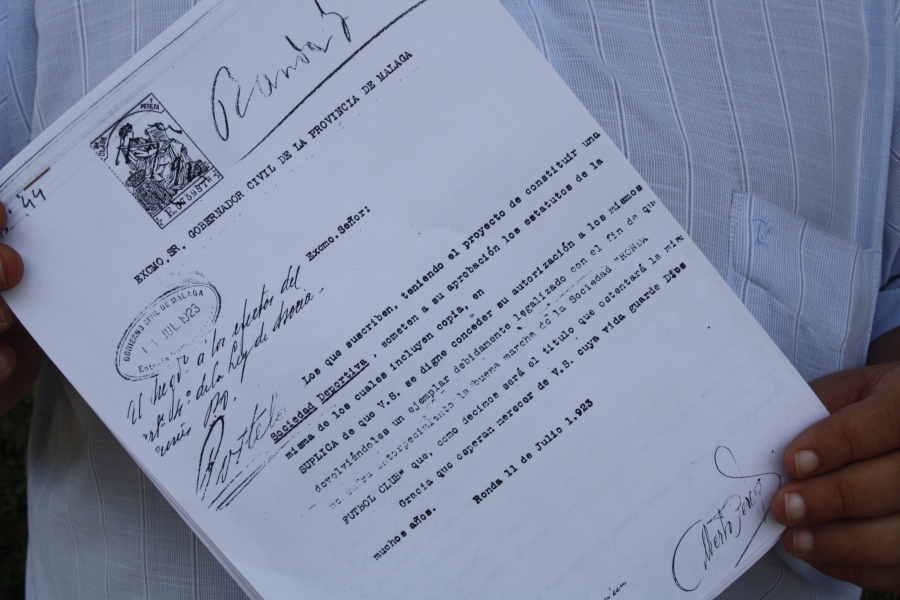 Ronda
44
PESETA
EXCMO.SR. GOBERNADOR CIVIL DE LA PROVINCIA DE MALAGA
Excmo.Señor:
GOBIERNO CIVIL DE MALAGA
11 JUL 1923
El Juego a los efectos del
art. 4º de la Ley de Asocia-
Los que suscriben, teniendo el proyecto de constituir una
Sociedad Deportiva, someten a su aprobación los estatutos de la
misma de los cuales incluyen copia, en
SUPLICA de que V.S. se digne conceder su autorización a los mismos
devolviéndoles un ejemplar debidamente legalizado con el fin de que
no sufra entorpecimiento la buena marcha de la Sociedad "RONDA
FUTBOL CLUB" que, como decimos será el título que ostentará la mis
Gracia que esperan merecer de V.S. cuya vida guarde Dios
muchos años.
Ronda 11 de Julio 1.923